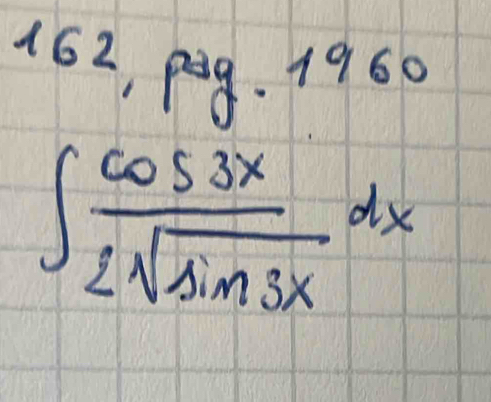 162, pag. 1960
∫ cos 3x / 2√sin 3x dx